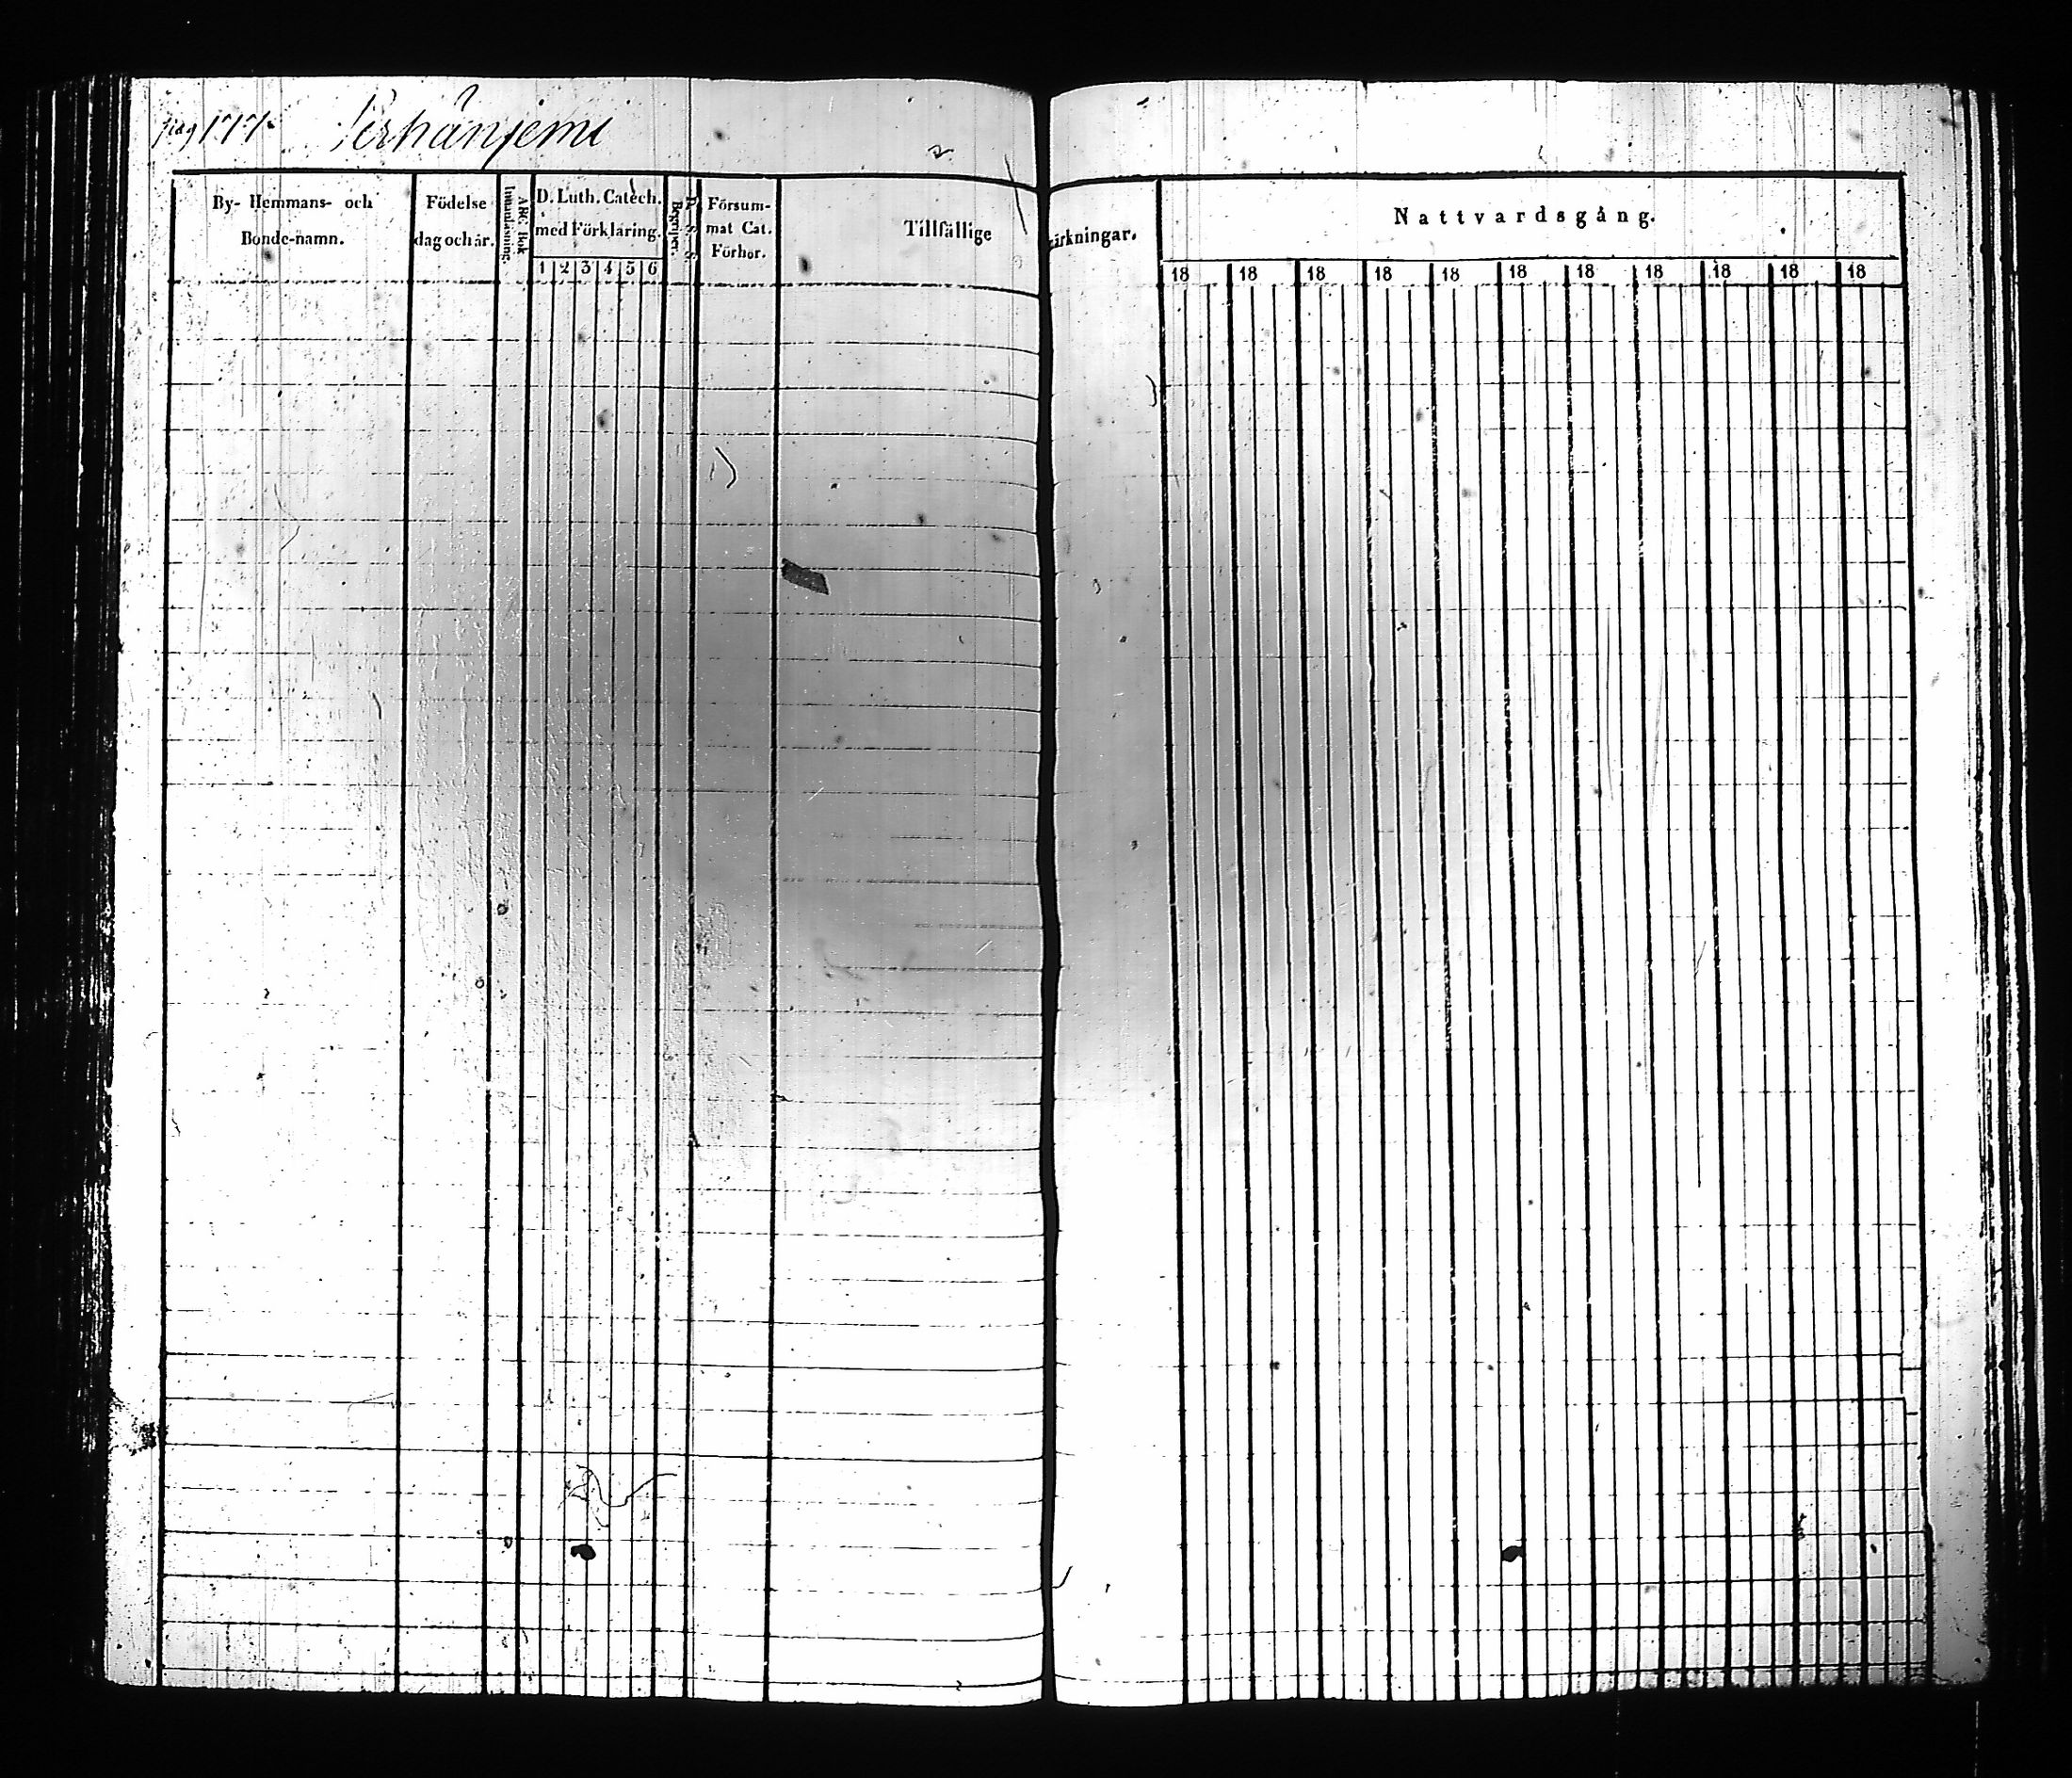 pag 177. Perhäniemi
By- Hemmans- och
Bonde-namn.
Födelse
dag och år.
ABC Bok
Innanläsning.
D. Luth. Catech.
med Förklaring.
1 2 3 4 5 6
Begriper.
Försum-
mat Cat.
Förhor.
Tillfällige
ärkningar.
Nattvardsgång.
18 18 18 18 18 18 18 18 18 18 18